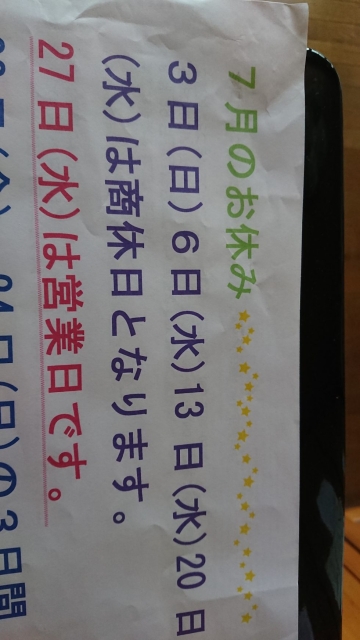 7月のお休み
3日(日)6日(水)13日(水)20日
(水)は商休日となります。
27日(水)は営業日です。
24日(日)の3日間